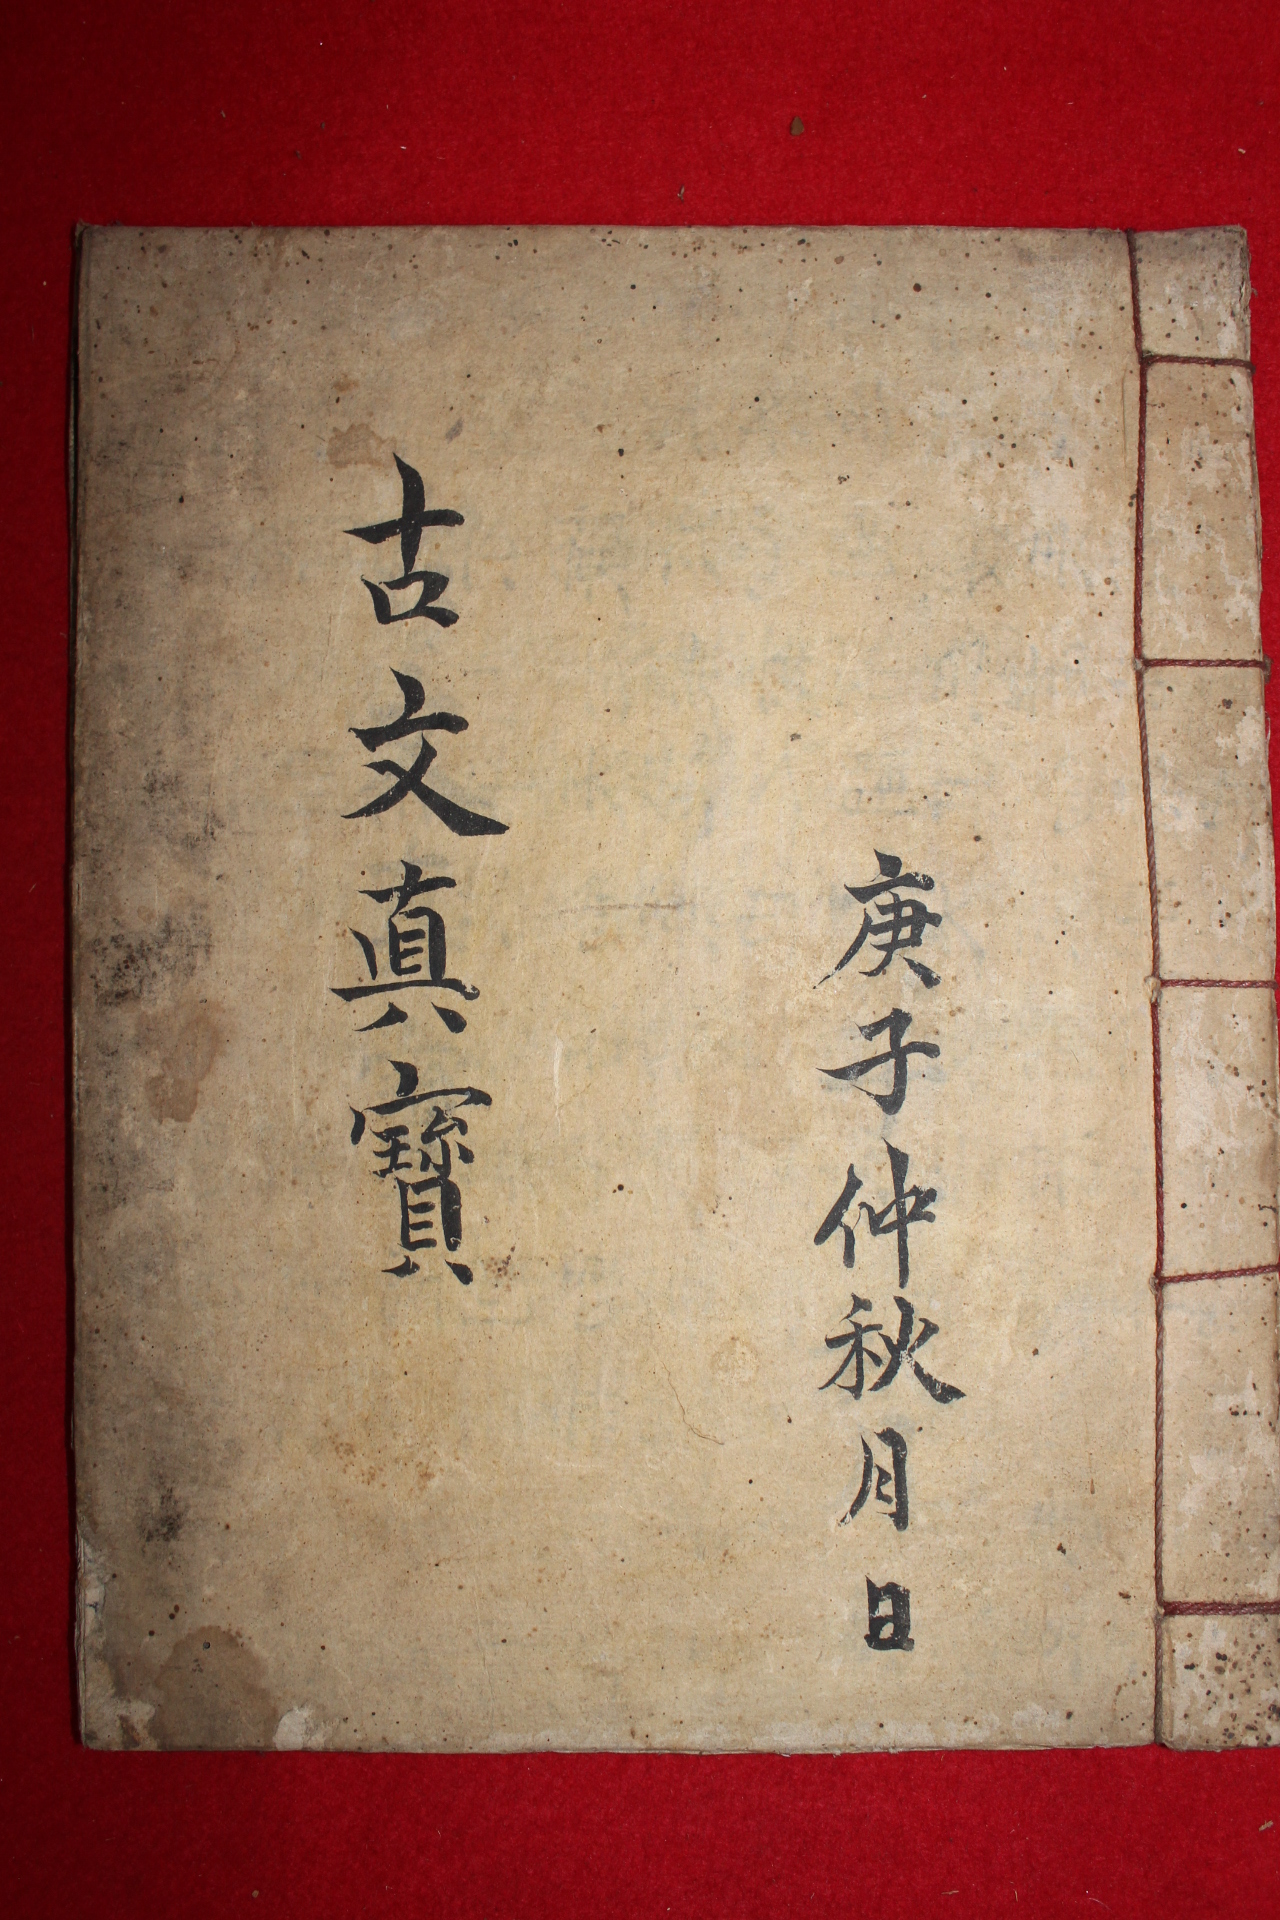 庚子仲秋月日
古文眞寶